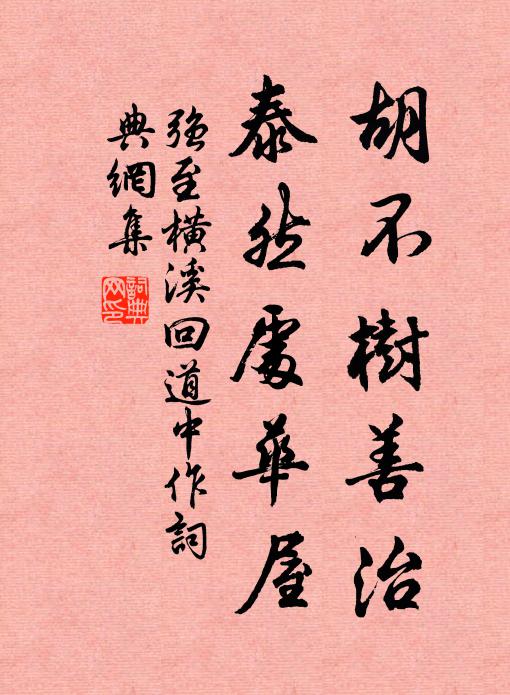 胡不樹善治
泰然處華屋
强至橫溪回道中作詞
典網集
詞典網印